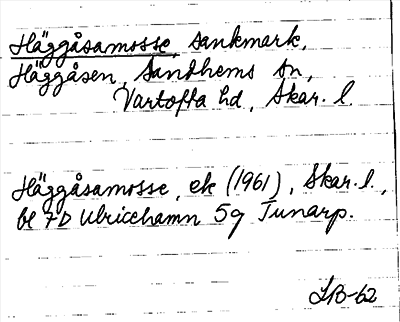 Häggåsamosse, sankmark,
Häggåsen, Sandhems sn,
Vartofta hd, Skar. l.
Häggåsamosse, ek (1961), Skar. l.,
bl 7D Ulricehamn 5g Tunarp.
LB-62